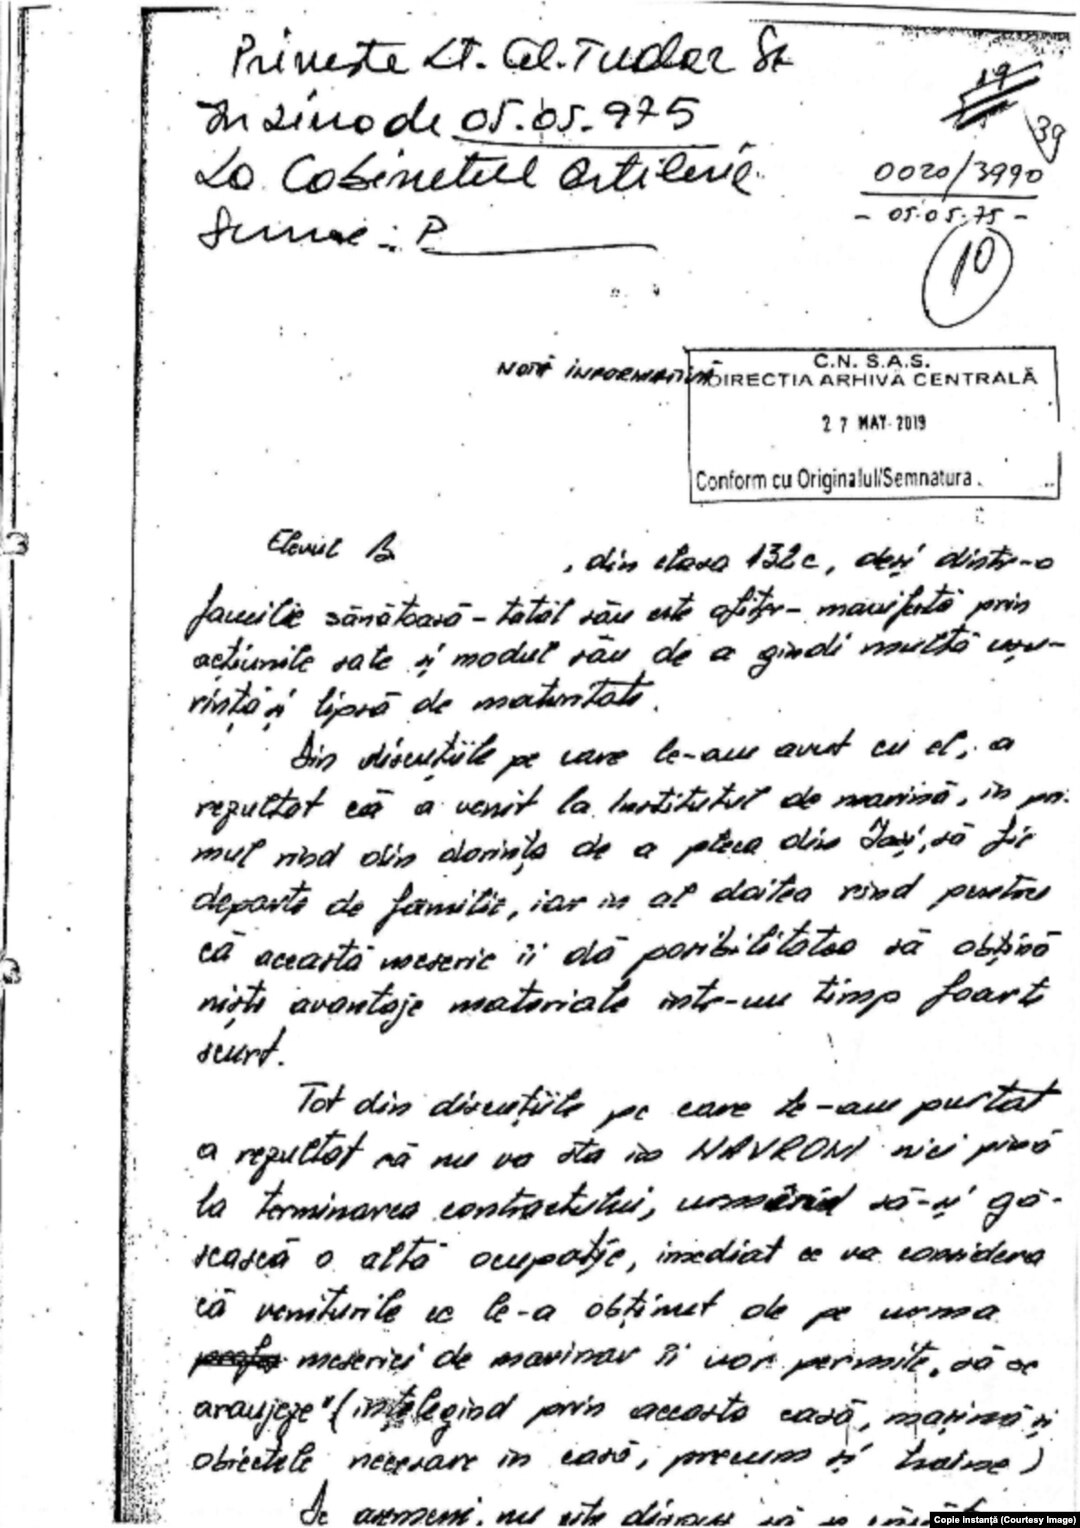 Primește Lt. Col. Tudor St
În ziua de 05.05.975
La Cabinetul Artilerie
Semnează: P
19
39
0020/3990
- 05.05.75 -
10
NOTĂ INFORMATIVĂ
C.N. S.A.S.
DIRECTIA ARHIVA CENTRALĂ
27 MAY 2019
Conform cu Originalul/Semnatura
Elevul B
, din clasa 132c, deși dintr-o
familie sănătoasă - tatăl său este ofițer - manifestă prin
acțiunile sale și modul său de a gîndi multă ușu-
rință și lipsă de maturitate.
Din discuțiile pe care le-am avut cu el, a
rezultat că a venit la Institutul de marină, în pri-
mul rînd din dorința de a pleca din Iași, să fie
departe de familie, iar în al doilea rînd pentru
că această meserie îi dă posibilitatea să obțină
niște avantaje materiale într-un timp foarte
scurt.
Tot din discuțiile pe care le-am purtat
a rezultat că nu va sta în NAVROM nici pînă
la terminarea contractului, urmărind să-și gă-
sească o altă ocupație, imediat ce va considera
că veniturile ce le-a obținut de pe urma
meseriei de marinar îi vor permite, să se
aranjeze" (înțelegînd prin aceasta casă, mașină și
obiectele necesare în casă, precum și haine)
De asemeni, nu este dispus să se
Copie instanță (Courtesy Image)